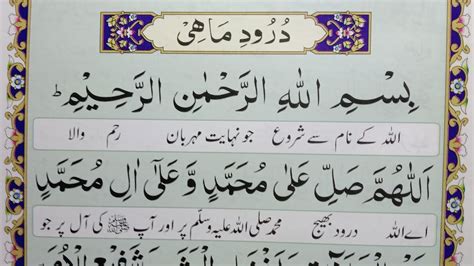 دُرُودِ مَاهِی
بِسْمِ اللهِ الرَّحْمٰنِ الرَّحِيْمِ ؕ
اللہ کے نام سے شروع جو نہایت مہربان رحم والا
اَللّٰهُمَّ صَلِّ عَلٰى مُحَمَّدٍ وَّ عَلٰٓى اٰلِ مُحَمَّدٍ
اے اللہ درود بھیج محمد صلی اللہ علیہ وسلم پر اور آپ ﷺ کی آل پر جو